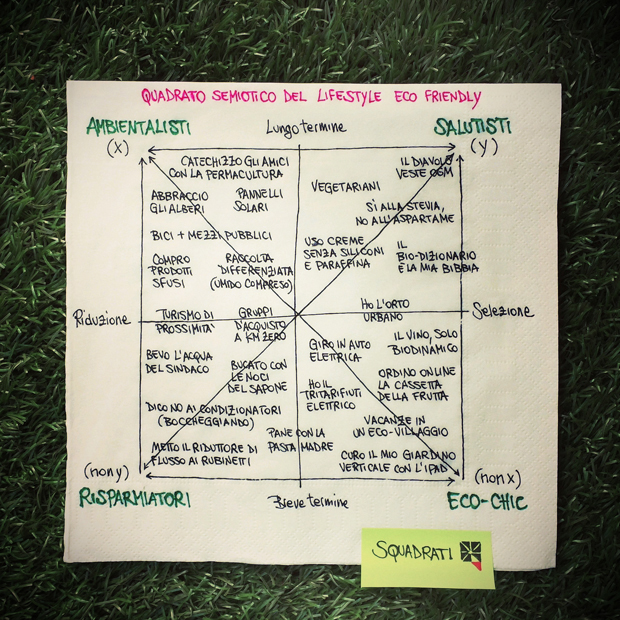 QUADRATO SEMIOTICO DEL LIFESTYLE ECO FRIENDLY
AMBIENTALISTI
(x)
Lungo termine
SALUTISTI
(y)
CATECHIZZO GLI AMICI
CON LA PERMACULTURA
IL DIAVOLO
VESTE OGM
ABBRACCIO
GLI ALBERI
PANNELLI
SOLARI
VEGETARIANI
SÌ ALLA STEVIA,
NO ALL'ASPARTAME
BICI + MEZZI PUBBLICI
COMPRO
PRODOTTI
SFUSI
RACCOLTA
DIFFERENZIATA
(UMIDO COMPRESO)
USO CREME
SENZA SILICONI
E PARAFFINA
IL
BIO-DIZIONARIO
È LA MIA BIBBIA
Riduzione
TURISMO DI
PROSSIMITA'
GRUPPI
D'ACQUISTO
A KM ZERO
HO L'ORTO
URBANO
Selezione
BEVO L'ACQUA
DEL SINDACO
BUCATO CON
LE NOCI
DEL SAPONE
GIRO IN AUTO
ELETTRICA
IL VINO, SOLO
BIODINAMICO
HO IL
TRITARIFIUTI
ELETTRICO
ORDINO ONLINE
LA CASSETTA
DELLA FRUTTA
DICO NO AI CONDIZIONATORI
(BOCCHEGGIANDO)
VACANZE IN
UN ECO-VILLAGGIO
METTO IL RIDUTTORE DI
FLUSSO AI RUBINETTI
PANE CON LA
PASTA MADRE
CURO IL MIO GIARDINO
VERTICALE CON L'IPAD
(non y)
RISPARMIATORI
Breve termine
(non x)
ECO-CHIC
SQUADRATI